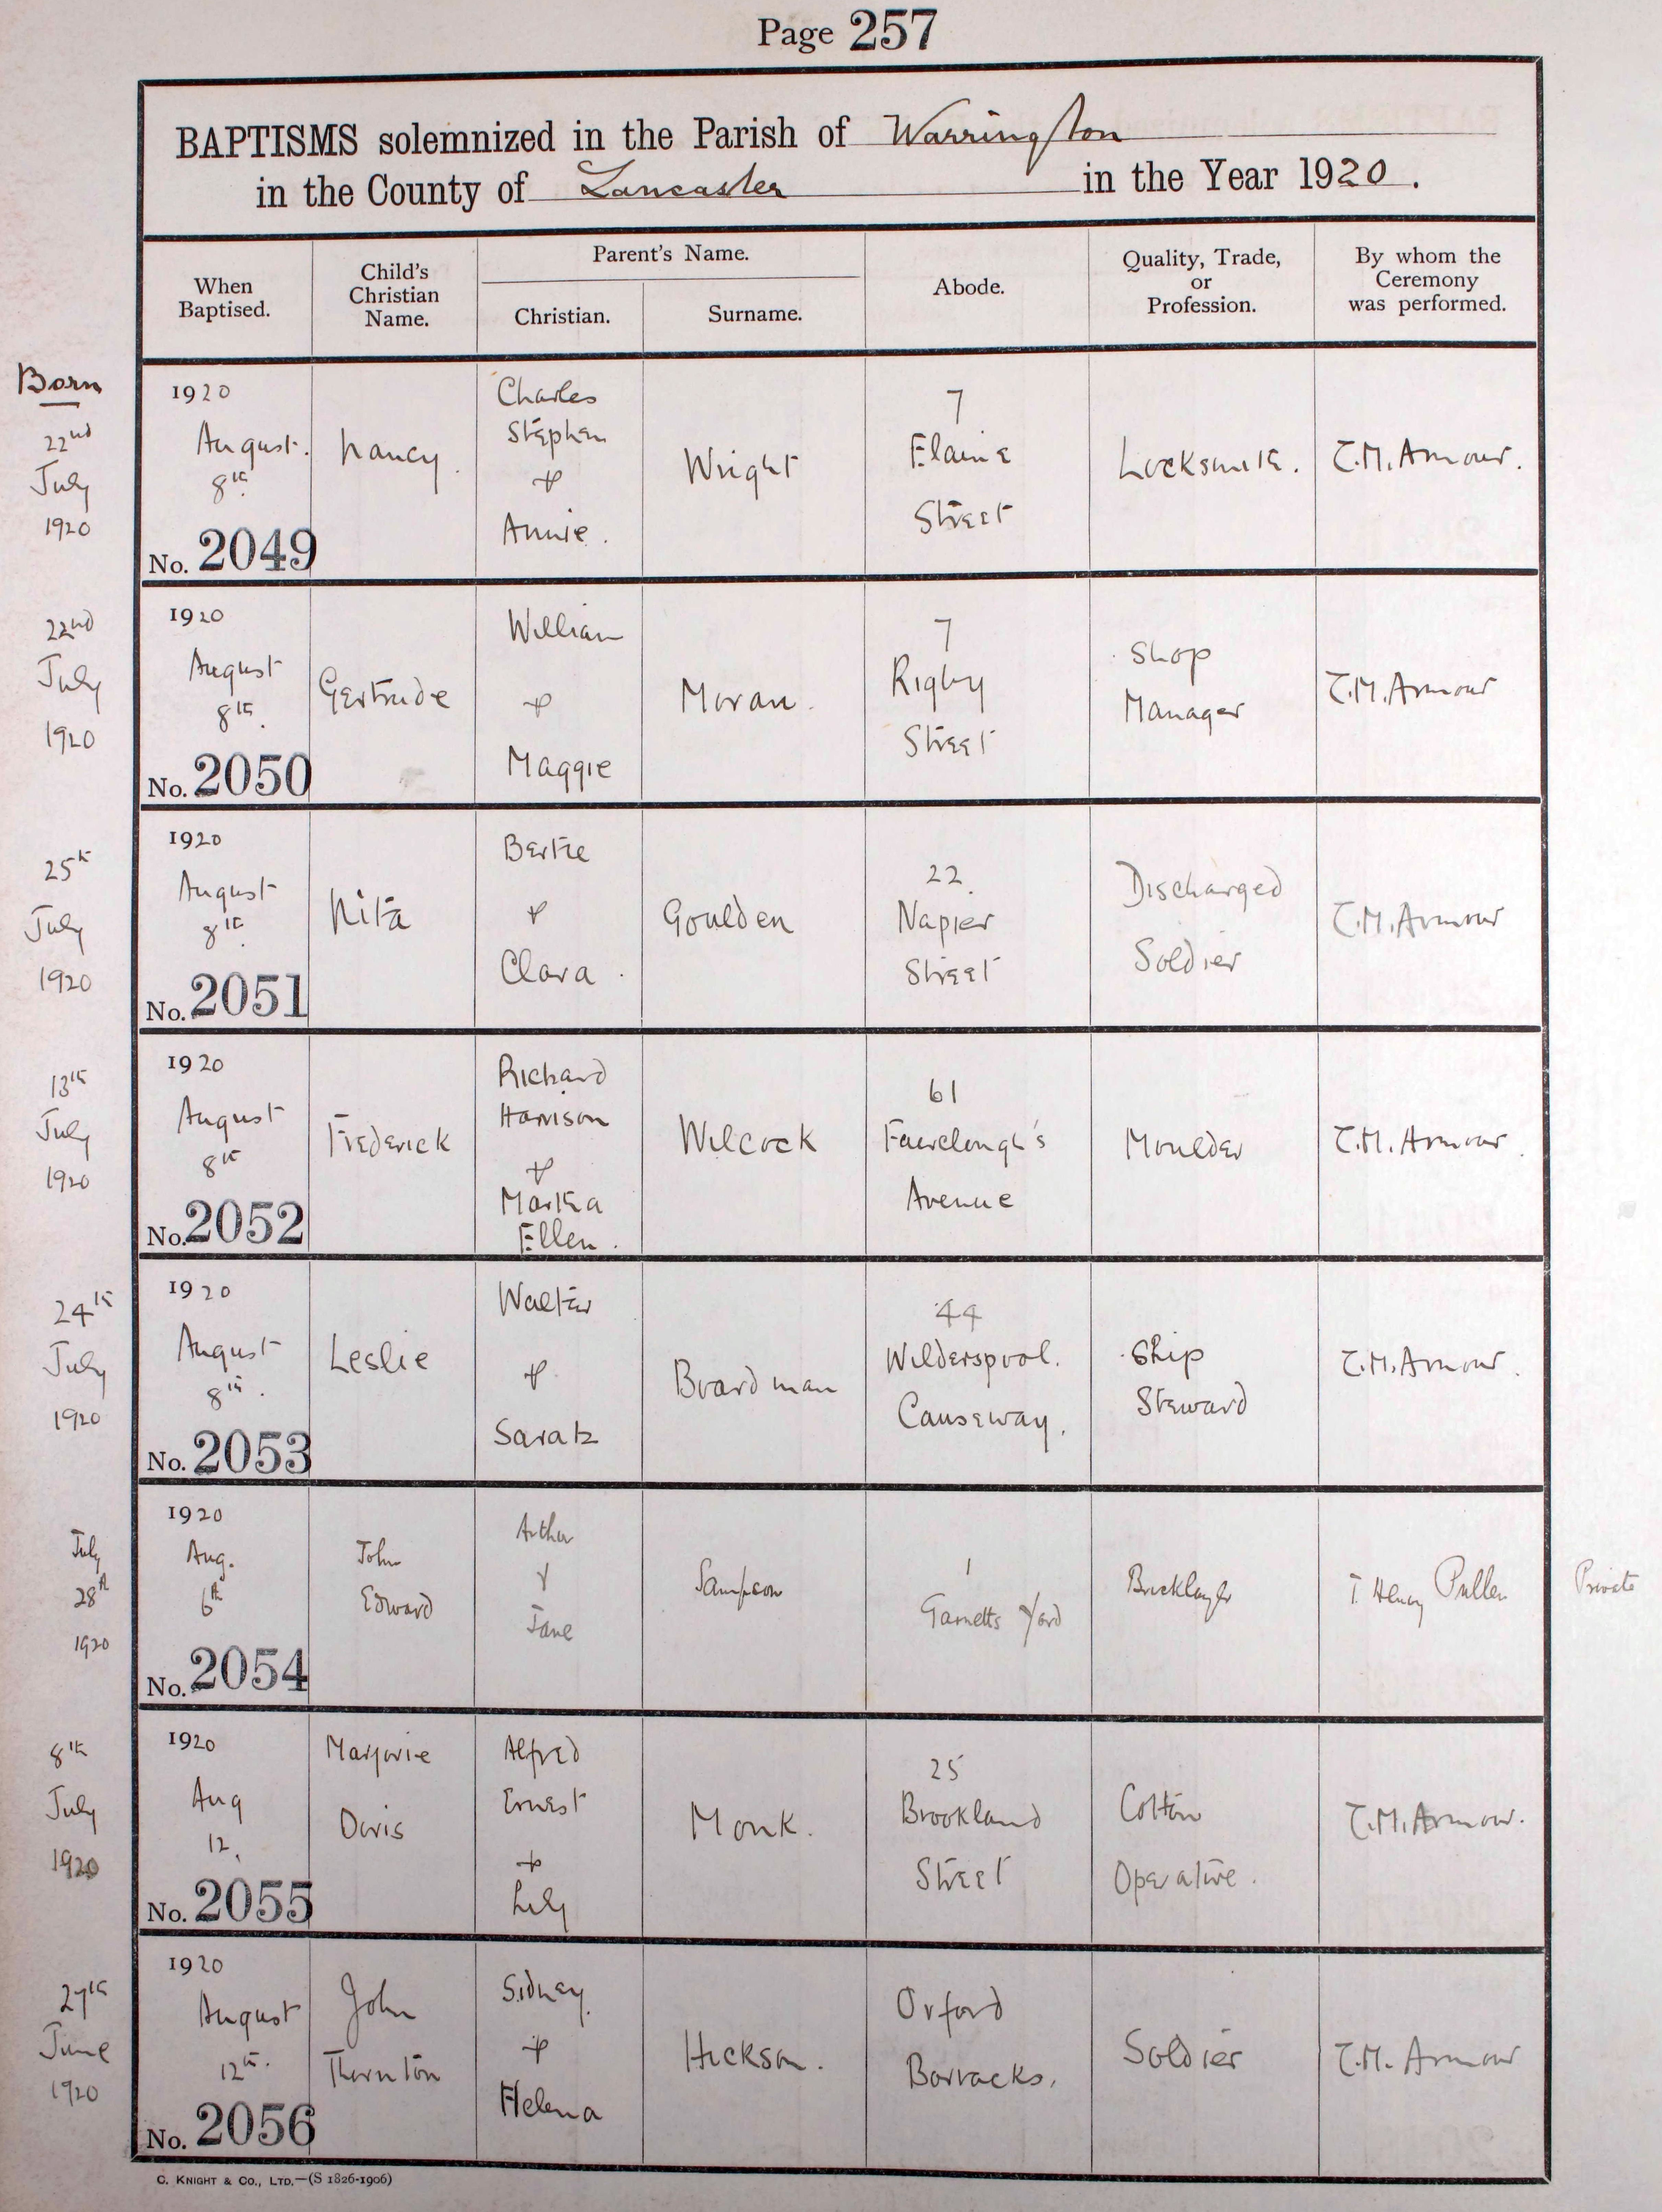 Page 257
BAPTISMS solemnized in the Parish of Warrington
in the County of Lancaster in the Year 1920.
When Baptised.
Child's Christian Name.
Parent's Name.
Christian.
Surname.
Abode.
Quality, Trade, or Profession.
By whom the Ceremony was performed.
Born
22nd
July
1920
1920
August.
8th.
No. 2049
Nancy.
Charles
Stephen
+
Annie.
Wright
7
Elaine
Street
Locksmith.
T.M. Armour.
22nd
July
1920
1920
August
8th.
No. 2050
Gertrude
William
+
Maggie
Moran.
7
Rigby
Street
Shop
Manager
T.M. Armour
25th
July
1920
1920
August
8th.
No. 2051
Nita
Bertie
+
Clara.
Goulden
22.
Napier
Street
Discharged
Soldier
T.M. Armour
13th
July
1920
1920
August
8th
No. 2052
Frederick
Richard
Harrison
+
Martha
Ellen.
Wilcock
61
Fairclough's
Avenue
Moulder
T.M. Armour.
24th
July
1920
1920
August
8th.
No. 2053
Leslie
Walter
+
Sarah
Boardman
44
Wilderspool.
Causeway.
Ship
Steward
T.M. Armour.
July
28th
1920
1920
Aug.
6th
No. 2054
John
Edward
Arthur
+
Jane
Sampson
1
Garnetts Yard
Bricklayer
T. Henry Pullen
Private
8th
July
1920
1920
Aug
12.
No. 2055
Marjorie
Doris
Alfred
Ernest
+
Lily
Monk.
25
Brookland
Street
Cotton
Operative.
T.M. Armour.
27th
June
1920
1920
August
12th.
No. 2056
John
Thornton
Sidney.
+
Helena
Hickson.
Orford
Barracks.
Soldier
T.M. Armour
C. KNIGHT & CO., LTD.—(S 1826-1906)